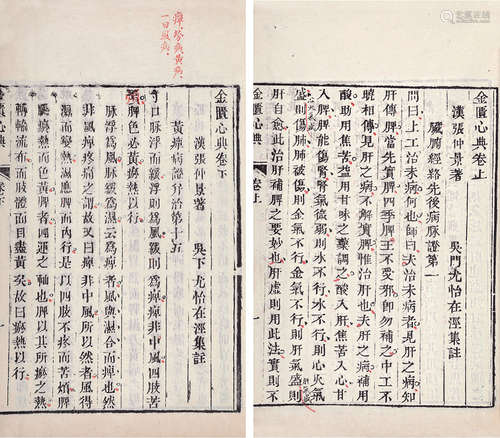 金匱心典卷上
漢張仲景著 吳門尤怡在涇集註
臟腑經絡先後病脈證第一
問曰上工治未病何也師曰夫治未病者見肝之病知
肝傳脾當先實脾四季脾王不受邪卽勿補之中工不
曉相傳見肝之病不解實脾惟治肝也夫肝之病補用
酸助用焦苦益用甘味之藥調之酸入肝焦苦入心甘
入脾脾能傷腎腎氣微弱則水不行水不行則心火氣
盛則傷肺肺被傷則金氣不行金氣不行則肝氣盛則
肝自愈此治肝補脾之要妙也肝虛則用此法實則不
金匱心典 卷上
癉勞病黃病
一曰風病
金匱心典卷下
漢張仲景著 吳下尤怡在涇集註
黃癉病證并治第十五
寸口脉浮而緩浮則為風緩則為痺痺非中風四肢苦
煩脾色必黃瘀熱以行
脉浮為風脉緩為濕云為痺者風與濕合而痺也然
非風痺疼痛之謂故又曰痺非中風所以然者風得
濕而變熱濕應脾而內行是以四肢不疼而苦煩脾
臟瘀熱而色黃脾者四運之軸也脾以其所瘀之熱
轉輸流布而肢體面目盡黃矣故曰瘀熱以行
金匱心典 卷下